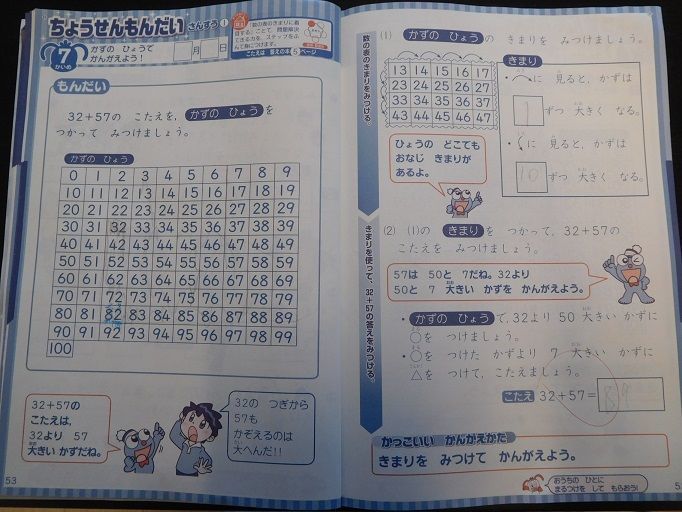 ちょうせんもんだい さんすう 1
7
かいめ
かずの ひょうで
かんがえよう!
月 日
「数の表のきまりに着
目する」ことで、問題解決
できる力を、ステップをふ
んで身につけます。
こたえは 答えの本5ページ
もんだい
32+57の こたえを、かずの ひょうを
つかって みつけましょう。
かずの ひょう
0 1 2 3 4 5 6 7 8 9
10 11 12 13 14 15 16 17 18 19
20 21 22 23 24 25 26 27 28 29
30 31 32 33 34 35 36 37 38 39
40 41 42 43 44 45 46 47 48 49
50 51 52 53 54 55 56 57 58 59
60 61 62 63 64 65 66 67 68 69
70 71 72 73 74 75 76 77 78 79
80 81 82 83 84 85 86 87 88 89
90 91 92 93 94 95 96 97 98 99
100
32+57の
こたえは、
32より 57
大きい かずだね。
32の つぎから
57も
かぞえるのは
大へんだ!!
53
数の表のきまりをみつける。
(1) かずの ひょう の きまりを みつけましょう。
13 14 15 16 17
23 24 25 26 27
33 34 35 36 37
43 44 45 46 47
きまり
・ に 見ると、かずは
1 ずつ 大きく なる。
・ に 見ると、かずは
10 ずつ 大きく なる。
ひょうの どこでも
おなじ きまりが
あるよ。
きまりを使って、32+57の答えをみつける。
(2) (1)の きまり を つかって、32+57の
こたえを みつけましょう。
57は 50と 7だね。32より
50と 7 大きい かずを かんがえよう。
・かずの ひょう で、32より 50 大きい かずに
○を つけましょう。
・○を つけた かずより 7 大きい かずに
△を つけて、こたえましょう。
こたえ 32+57= 89
かっこいい かんがえかた
きまりを みつけて かんがえよう。
おうちの ひとに
まるつけを して もらおう!